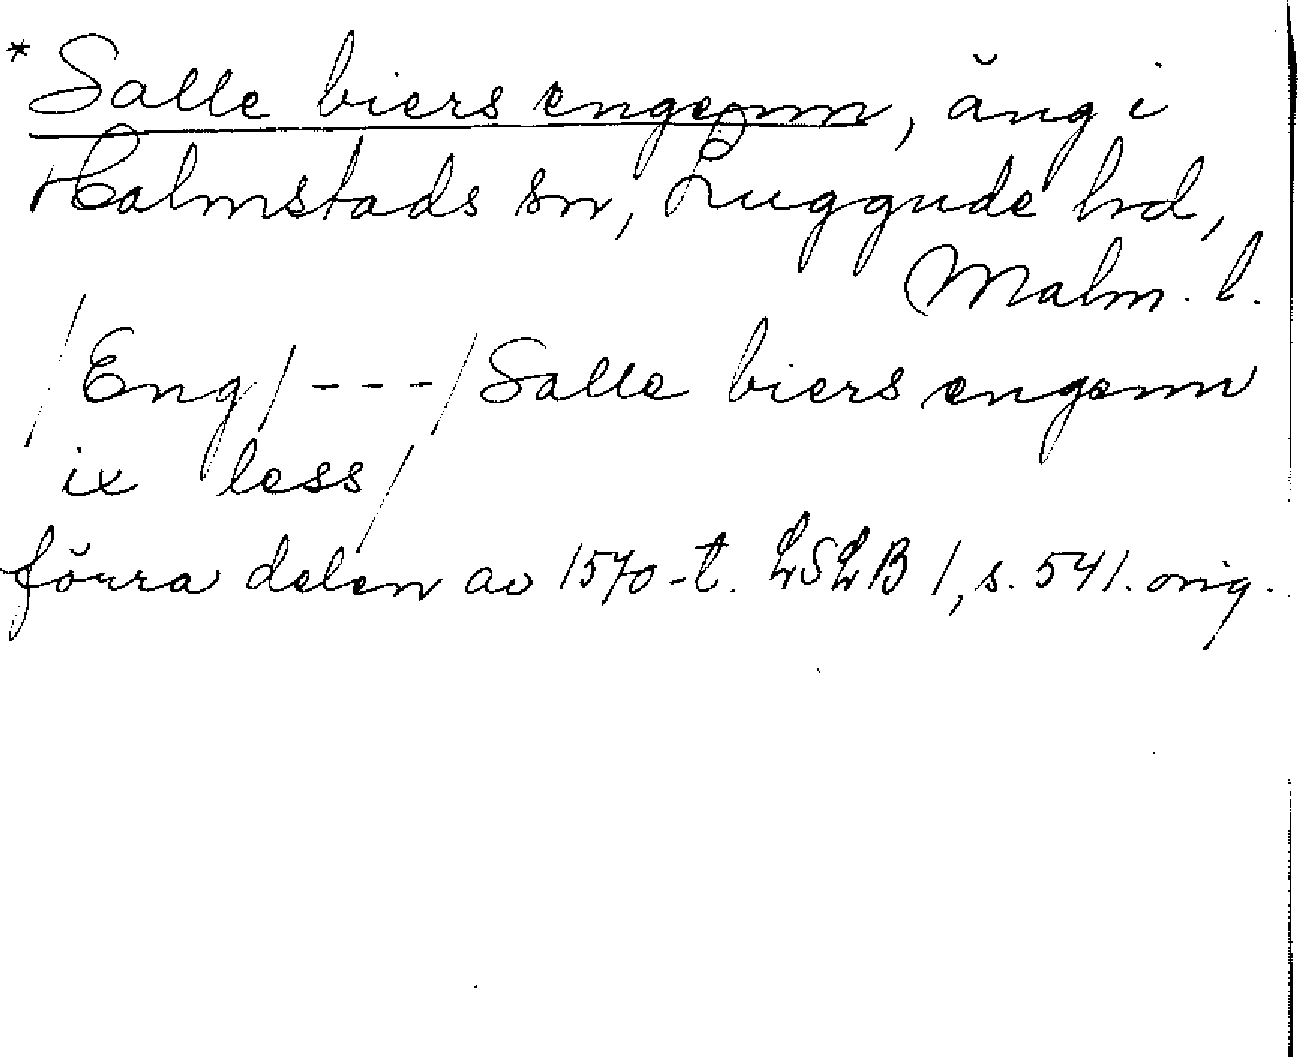 * Salle biers engenn, äng i
Halmstads sn, Luggude hd,
Malm. l.
/Eng/ - - - /Salle biers engenn
ix less/
förra delen av 1570-t. LSLB 1, s. 541. orig.